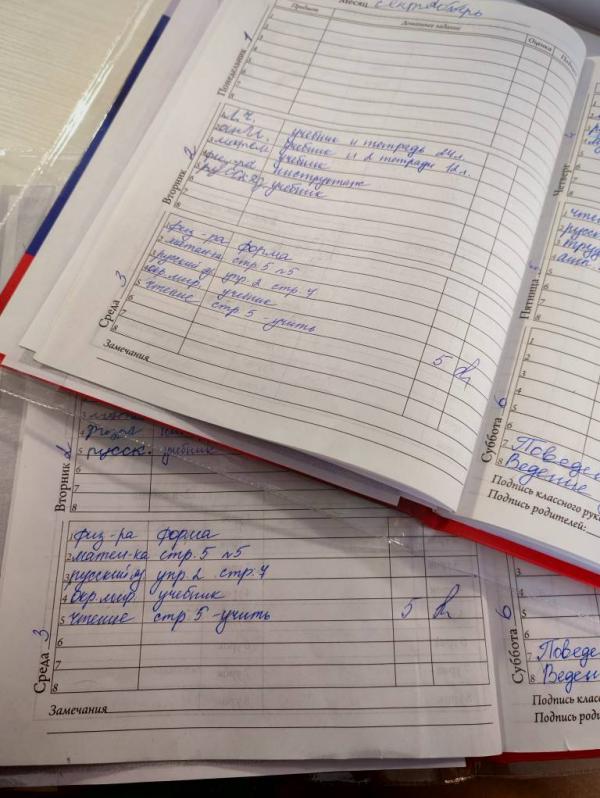 Месяц сентябрь
Предмет Домашнее задание Оценка
Понедельник 1
1.
2
3
4
5
6
7
8
Вторник 2
Л.Ч. учебник и тетрадь 24л.
учебник и 2 тетради 12л.
учебник
физ-ра инструктаж
учебник
6
7
8
Среда 3
1 физ-ра форма
2 матем-ка стр. 5 №5
3 русский яз упр. 2 стр 4
4 окр. мир. учебник
5 чтение стр 5 - учить
6
7
8
5
Замечания
Четверг
Пятница
Суббота 6
1
2
3
4
5
6
7 Поведе
8 Ведение
Подпись классного руко
Подпись родителей:
Вторник 2
3
4
5 русск. учебник
6
7
8
Среда 3
1 физ-ра форма
2 матем-ка стр. 5 №5
3 русский яз упр 2 стр. 4
4 Окр. мир. учебник
5 чтение стр 5 - учить 5
6
7
8
Замечания
Суббота 6
5
6
7 Поведе
8 Веден
Подпись класс
Подпись роди